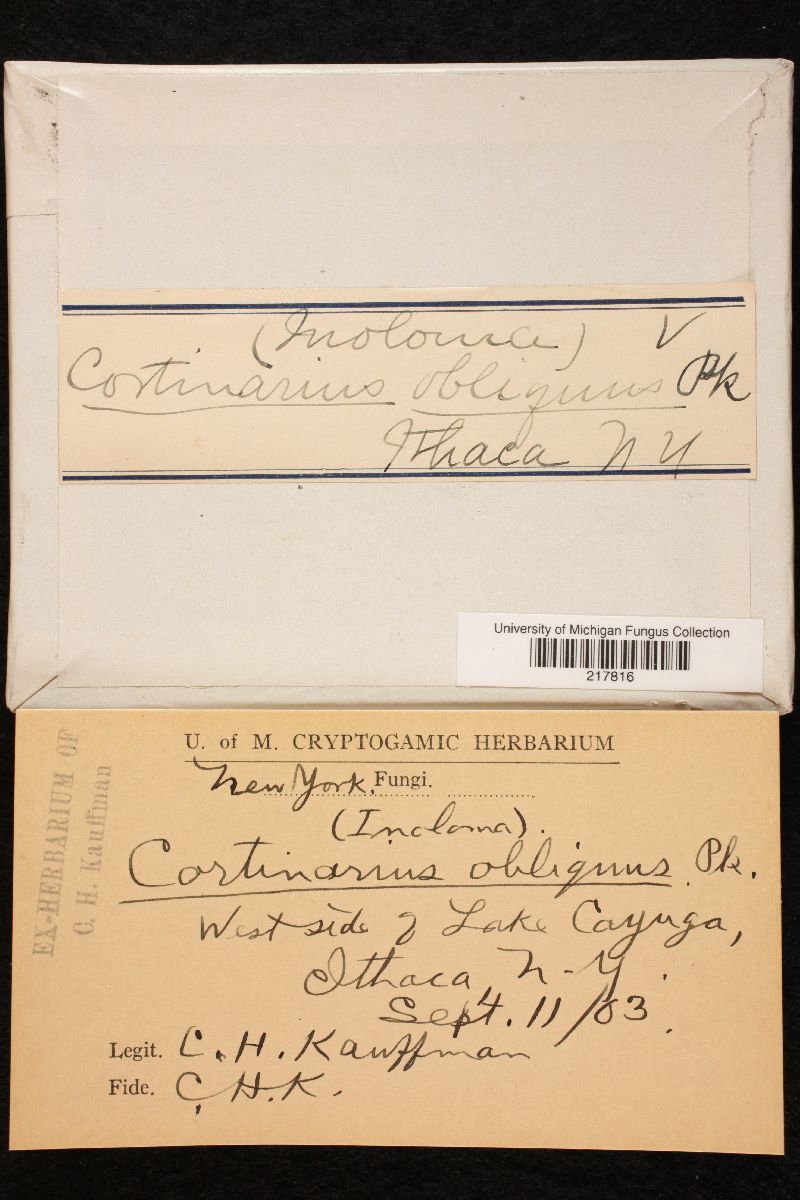 (Inoloma) V
Cortinarius obliquus Pk
Ithaca N Y
University of Michigan Fungus Collection
217816
U. of M. CRYPTOGAMIC HERBARIUM
New York. Fungi.
(Inoloma).
Cortinarius obliquus. Pk.
West side of Lake Cayuga,
Ithaca N-Y.
Sept. 11/03.
Legit. C. H. Kauffman
Fide. C. H. K.
EX-HERBARIUM OF
C. H. Kauffman